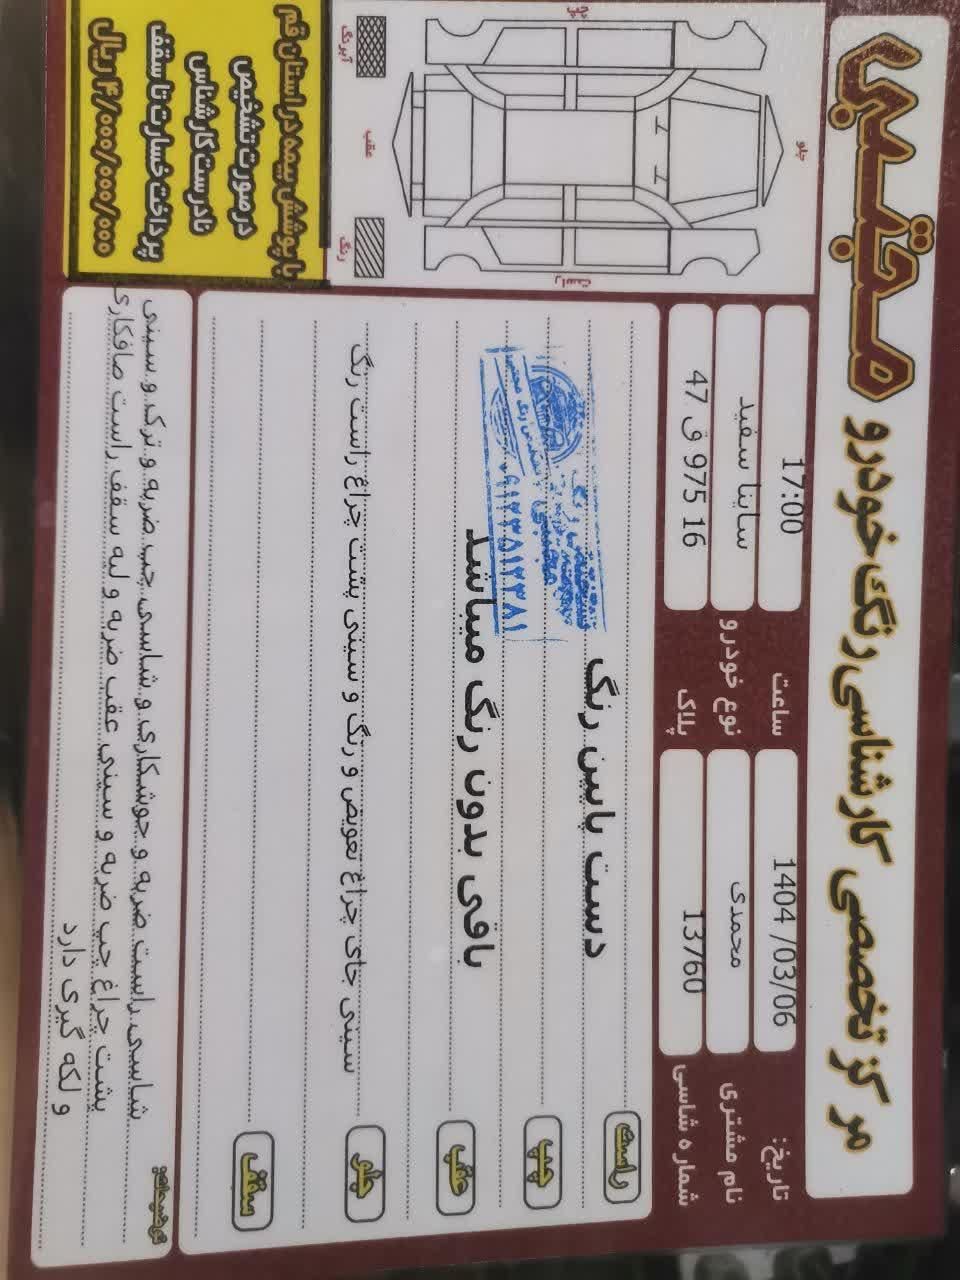 مرکز تخصصی کارشناسی رنگ خودرو مجتبی
تاریخ: 1404/03/06 ساعت 17:00
نام مشتری محمدی نوع خودرو ساینا سفید
شماره شاسی 13760 پلاک 47 ق 975 16
جلو
عقب
چپ
راست
آبرنگ
رنگ
با پوشش بیمه در استان قم
در صورت تشخیص
نادرست کارشناس
پرداخت خسارت تا سقف
۴/۰۰۰/۰۰۰/۰۰۰ ریال
راست
دست پایین رنگ
چپ
عقب
باقی بدون رنگ میباشد
جلو
سینی جای چراغ تعویض و رنگ و سینی پشت چراغ راست رنگ
سقف
۰۹۱۲۳۵۱۲۳۸۱
توضیحات:
شاسی راست ضربه و جوشکاری و شاسی چپ ضربه و ترک و سینی
پشت چراغ چپ ضربه و سینی عقب ضربه و لبه سقف راست صافکاری
و لکه گیری دارد